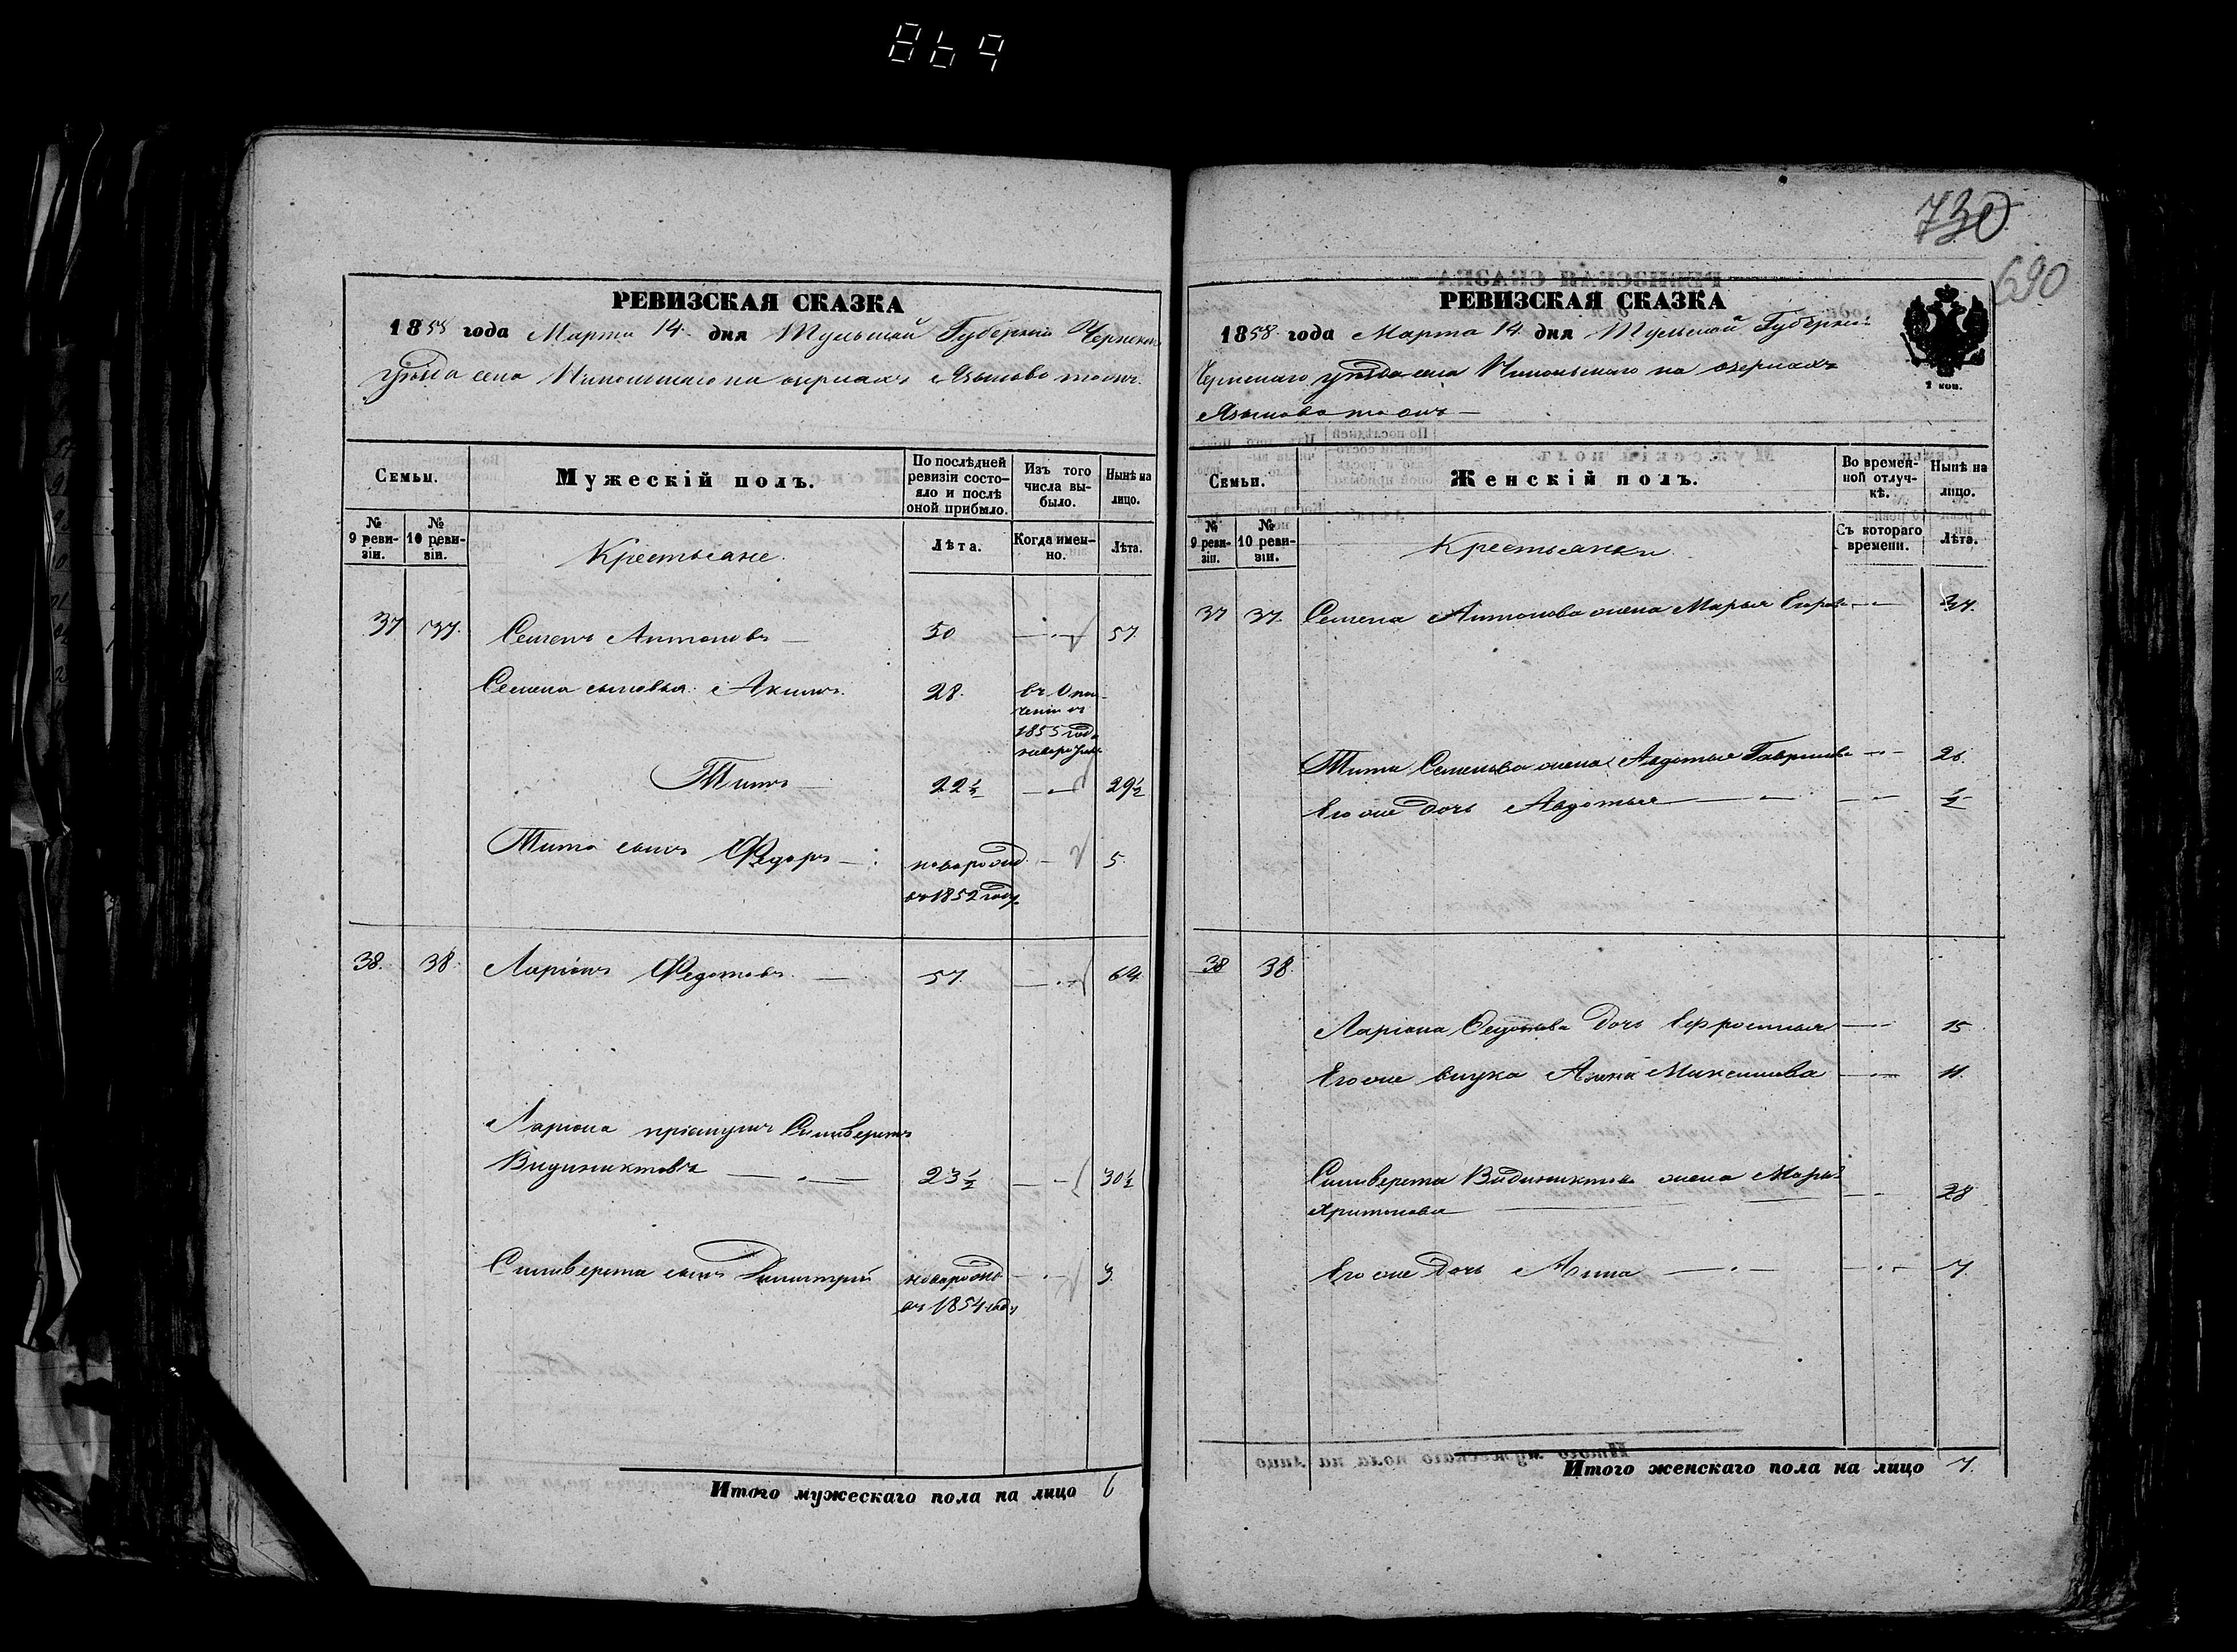 869
РЕВИЗСКАЯ СКАЗКА
1858 года Марта 14. дня Тульской Губерніи Чернскаго
уѣзда села Никольскаго на озеркахъ Языково тожъ.
Семьи.
Мужескій полъ.
По послѣдней ревизіи состояло и послѣ оной прибыло.
Изъ того числа выбыло.
Нынѣ на лицо.
№ 9 ревизіи.
№ 10 ревизіи.
Крестьяне.
Лѣта.
Когда именно.
Лѣта.
37 37. Семенъ Антоновъ — 50 57.
Семена сыновья: Акимъ. 28. въ
1855 году
Титъ — 22½ 29½
Тита сынъ Федоръ — новорожд. 5.
въ 1852 году
38. 38. Ларіонъ Федотовъ. — 57. 64.
Ларіона пріемушъ Силиверстъ
Видиниктовъ 23½ 30½
Силиверста сынъ Димитрій новорожд. 3.
въ 1854 году
Итого мужескаго пола на лицо 6
730
690
РЕВИЗСКАЯ СКАЗКА
1858 года Марта 14. дня Тульской Губерніи
Чернскаго уѣзда села Никольскаго на озеркахъ
Языково тожъ —
2 коп.
Семьи.
Женскій полъ.
Во временной отлучкѣ.
Нынѣ на лицо.
№ 9 ревизіи.
№ 10 ревизіи.
Крестьянки
Съ котораго времени.
Лѣта.
37 37. Семена Антонова жена Марья
Тита Семенова жена Авдотья Гаврилова
Его же дочь Авдотья ½
38 38.
Ларіона Федотова дочь Ефросинья 15
Его же внука Анна Максимова 11.
Силиверста Видиниктова жена Марья
Харитонова 28
Его же дочь Анна 7.
Итого женскаго пола на лицо 7.